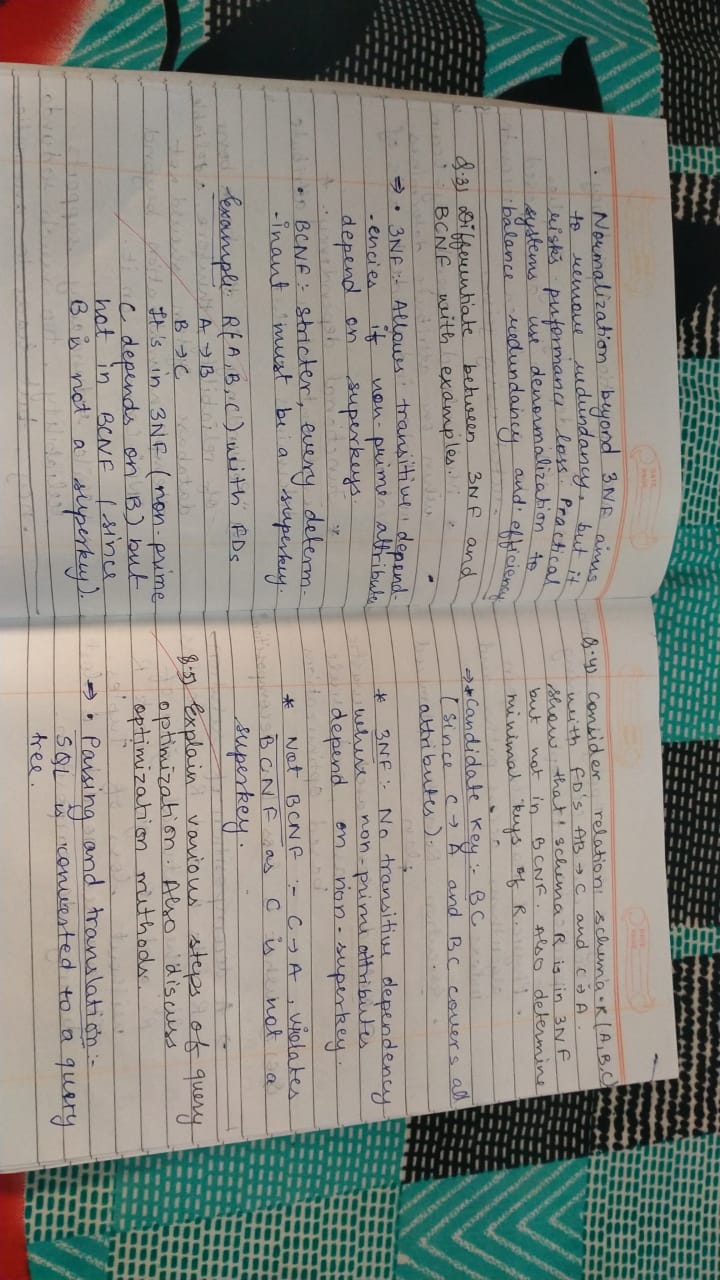 DATE
PAGE
. Normalization beyond 3NF aims
to remove redundancy, but it
risks performance loss. Practical
systems use denormalization to
balance redundancy and efficiency
Q.3) Differentiate between 3NF and
BCNF with examples.
⇒ • 3NF:- Allows transitive depend-
-encies if non-prime attributes
depend on superkeys.
• BCNF:- stricter, every determ-
-inant must be a superkey.
Example:- R(A,B,C) with FDs
A → B
B → C
It's in 3NF (non-prime
C depends on B) but
not in BCNF (since
B is not a superkey).
DATE
PAGE
Q.4) Consider relation schema R(A,B,C)
with FD's AB → C and C → A.
show that schema R is in 3NF
but not in BCNF. Also determine
minimal keys of R.
⇒ * Candidate Key:- BC
(since C → A and BC covers all
attributes).
* 3NF:- No transitive dependency
where non-prime attributes
depend on non-superkey.
* Not BCNF :- C → A, violates
BCNF as C is not a
superkey.
Q.5) Explain various steps of query
optimization. Also discuss
optimization methods.
⇒ • Parsing and translation:-
SQL is converted to a query
tree.